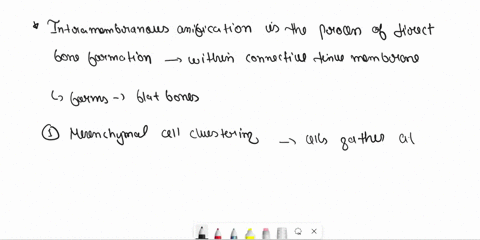 * Intramembranous ossification is the process of direct
bone formation → within connective tissue membrane
↳ forms → flat bones
① Mesenchymal cell clustering → cells gather at